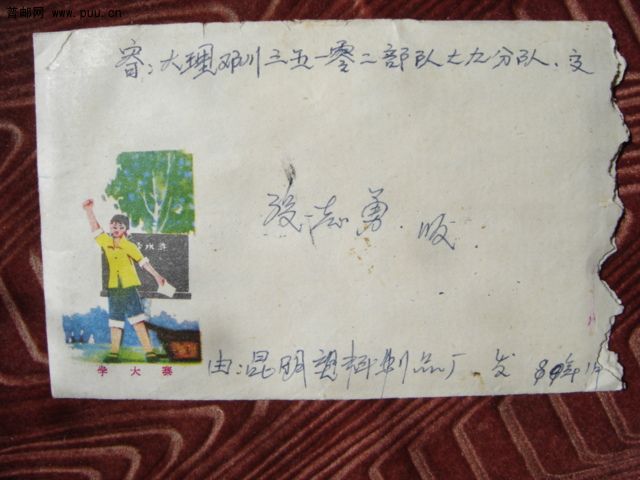 普邮网 www.puu.cn
寄:大理邓川三五一零二部队七九分队.交
志勇.收.
学大寨
由:昆明塑料制品厂.发